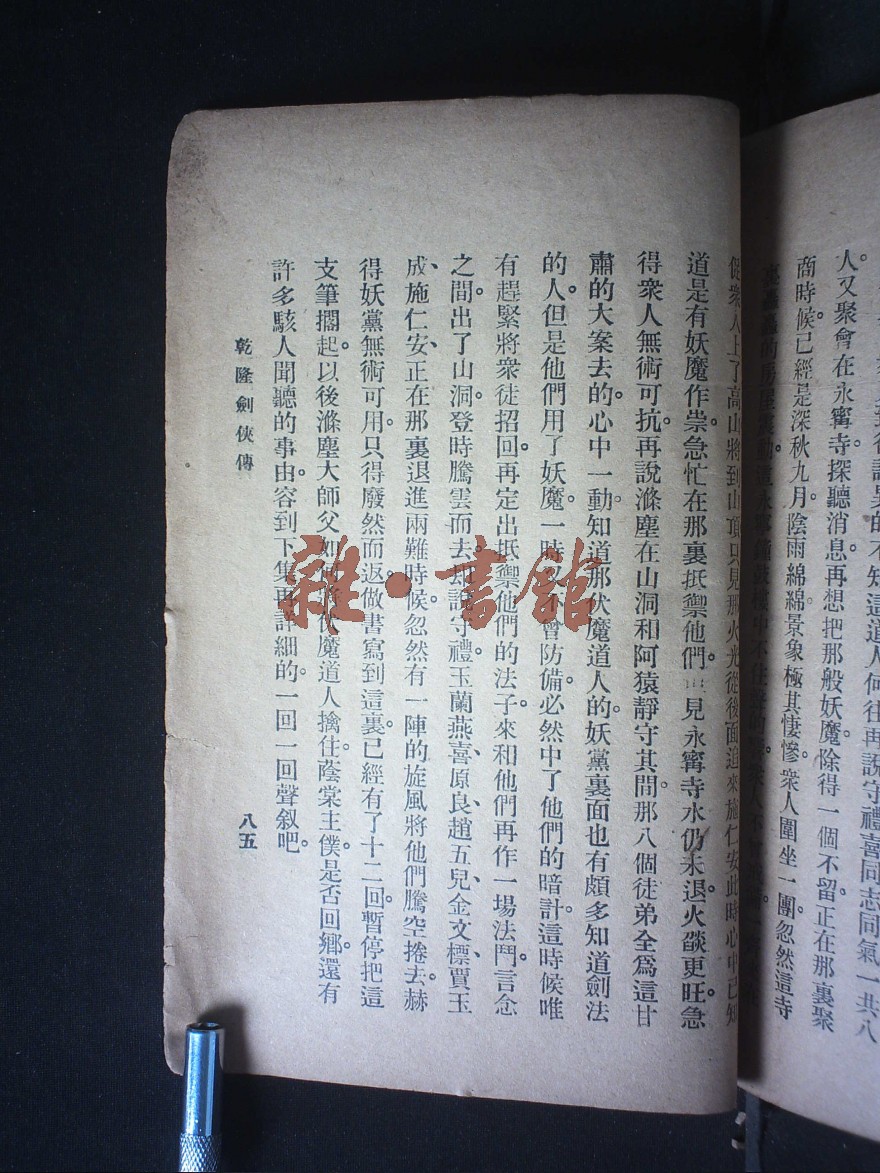 人。又聚會在永寗寺。探聽消息。再想把那般妖魔。除得一個不留。正在那裏聚
商時候。已經是深秋九月。陰雨綿綿。景象極其悽慘。衆人圍坐一團。忽然這寺
促衆人上了高山將到山頂只見那火光從後面追來施仁安此時心中已知
道是有妖魔作祟。急忙在那裏抵禦他們。見永寗寺水仍未退。火燄更旺。急
得衆人無術可抗。再說滌塵在山洞和阿猿靜守其間。那八個徒弟全爲這甘
肅的大案去的。心中一動。知道那伏魔道人的妖黨裏面也有頗多知道劍法
的人。但是他們用了妖魔。一時不會防備。必然中了他們的暗計。這時候唯
有趕緊將衆徒招回。再定出抵禦他們的法子。來和他們再作一場法鬥。言念
之間。出了山洞。登時騰雲而去。却說守禮、玉蘭、燕喜、原良、趙五兒、金文標、賈玉
成、施仁安、正在那裏退進兩難時候。忽然有一陣的旋風。將他們騰空捲去。赫
得妖黨無術可用。只得廢然而返。做書寫到這裏。已經有了十二回。暫停把這
支筆擱起。以後滌塵大師父如魔道人擒住。蔭棠主僕。是否回鄉。還有
許多駭人聞聽的事由。容到下集再詳細的。一回一回聲叙吧。
乾隆劍俠傳
八五
雜·書館